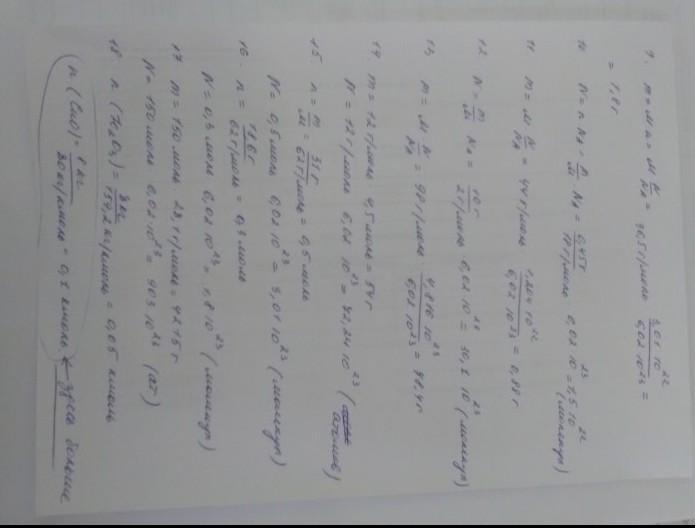 9. m = M n = M N/NA = 36,5 г/моль 3,01·10^22/6,02·10^23 =
= 1,8 г
10 N = n NA = m/M NA = 0,45г/18г/моль 6,02·10^23 = 1,5·10^22 (молекул)
11 m = M N/NA = 44 г/моль 1,204·10^22/6,02·10^23 = 0,88 г
12 N = m/M NA = 10 г/2 г/моль 6,02·10^23 = 30,1·10^23 (молекул)
13, m = M N/NA = 98 г/моль 4,816·10^23/6,02·10^23 = 78,4 г
14 m = 12 г/моль · 4,5 моль = 54 г
N = 12 г/моль 6,02·10^23 = 72,24·10^23 (атомов)
15. n = m/M = 31 г/62 г/моль = 0,5 моль
N = 0,5 моль 6,02·10^23 = 3,01·10^23 (молекул)
16. n = 18,6 г/62 г/моль = 0,3 моль
N = 0,3 моль 6,02·10^23 = 1,8·10^23 (молекул)
17 m = 150 моль 28,1 г/моль = 4215 г
N = 150 моль 6,02·10^23 = 903·10^23 (ат)
18. n (Fe2O3) = 8 кг/159,2 кг/кмоль = 0,05 кмоль
n (CuO) = 8 кг/80 кг/кмоль = 0,1 кмоль ← здесь больше